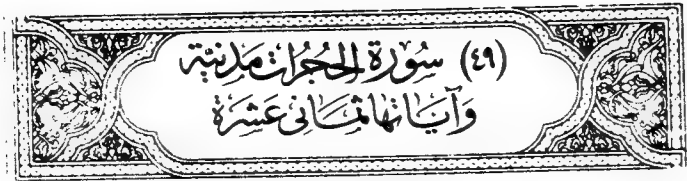 (٤٩) سُورَة الحُجُرات مَدنِيَّة
وَآيَاتها ثمَانى عَشرَة